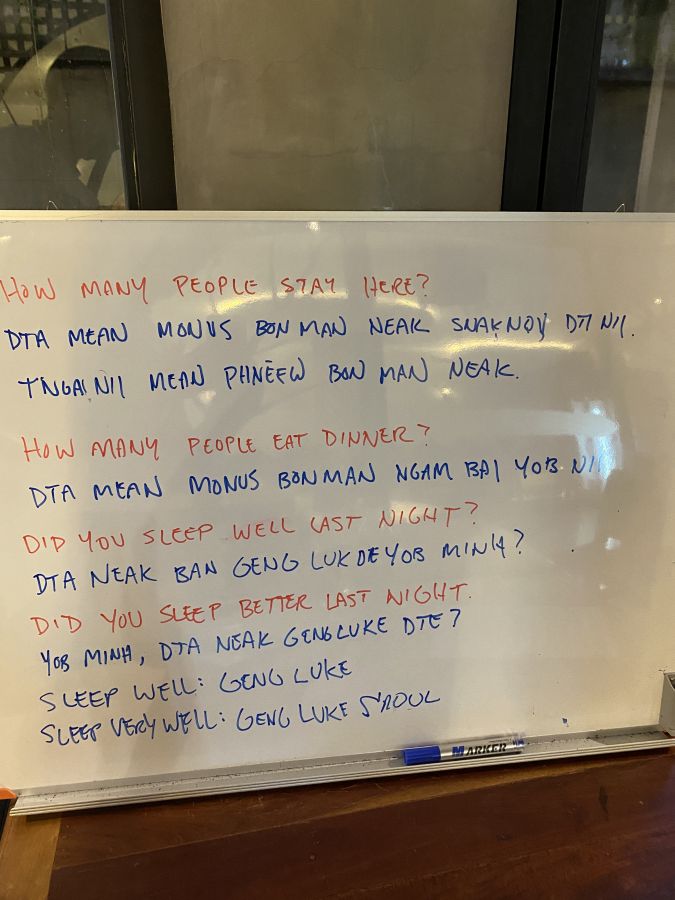 HOW MANY PEOPLE STAY HERE?
DTA MEAN MONUS BON MAN NEAK SNAKNOY DTI NII.
T'NGAI NII MEAN PHNEEW BON MAN NEAK.
HOW MANY PEOPLE EAT DINNER?
DTA MEAN MONUS BONMAN NGAM BAI YOB NII
DID YOU SLEEP WELL LAST NIGHT?
DTA NEAK BAN GENG LUK DE YOB MINH?
DID YOU SLEEP BETTER LAST NIGHT.
YOB MINH, DTA NEAK GENG LUKE DTE?
SLEEP WELL: GENG LUKE
SLEEP VERY WELL: GENG LUKE S'ROUL
MARKER